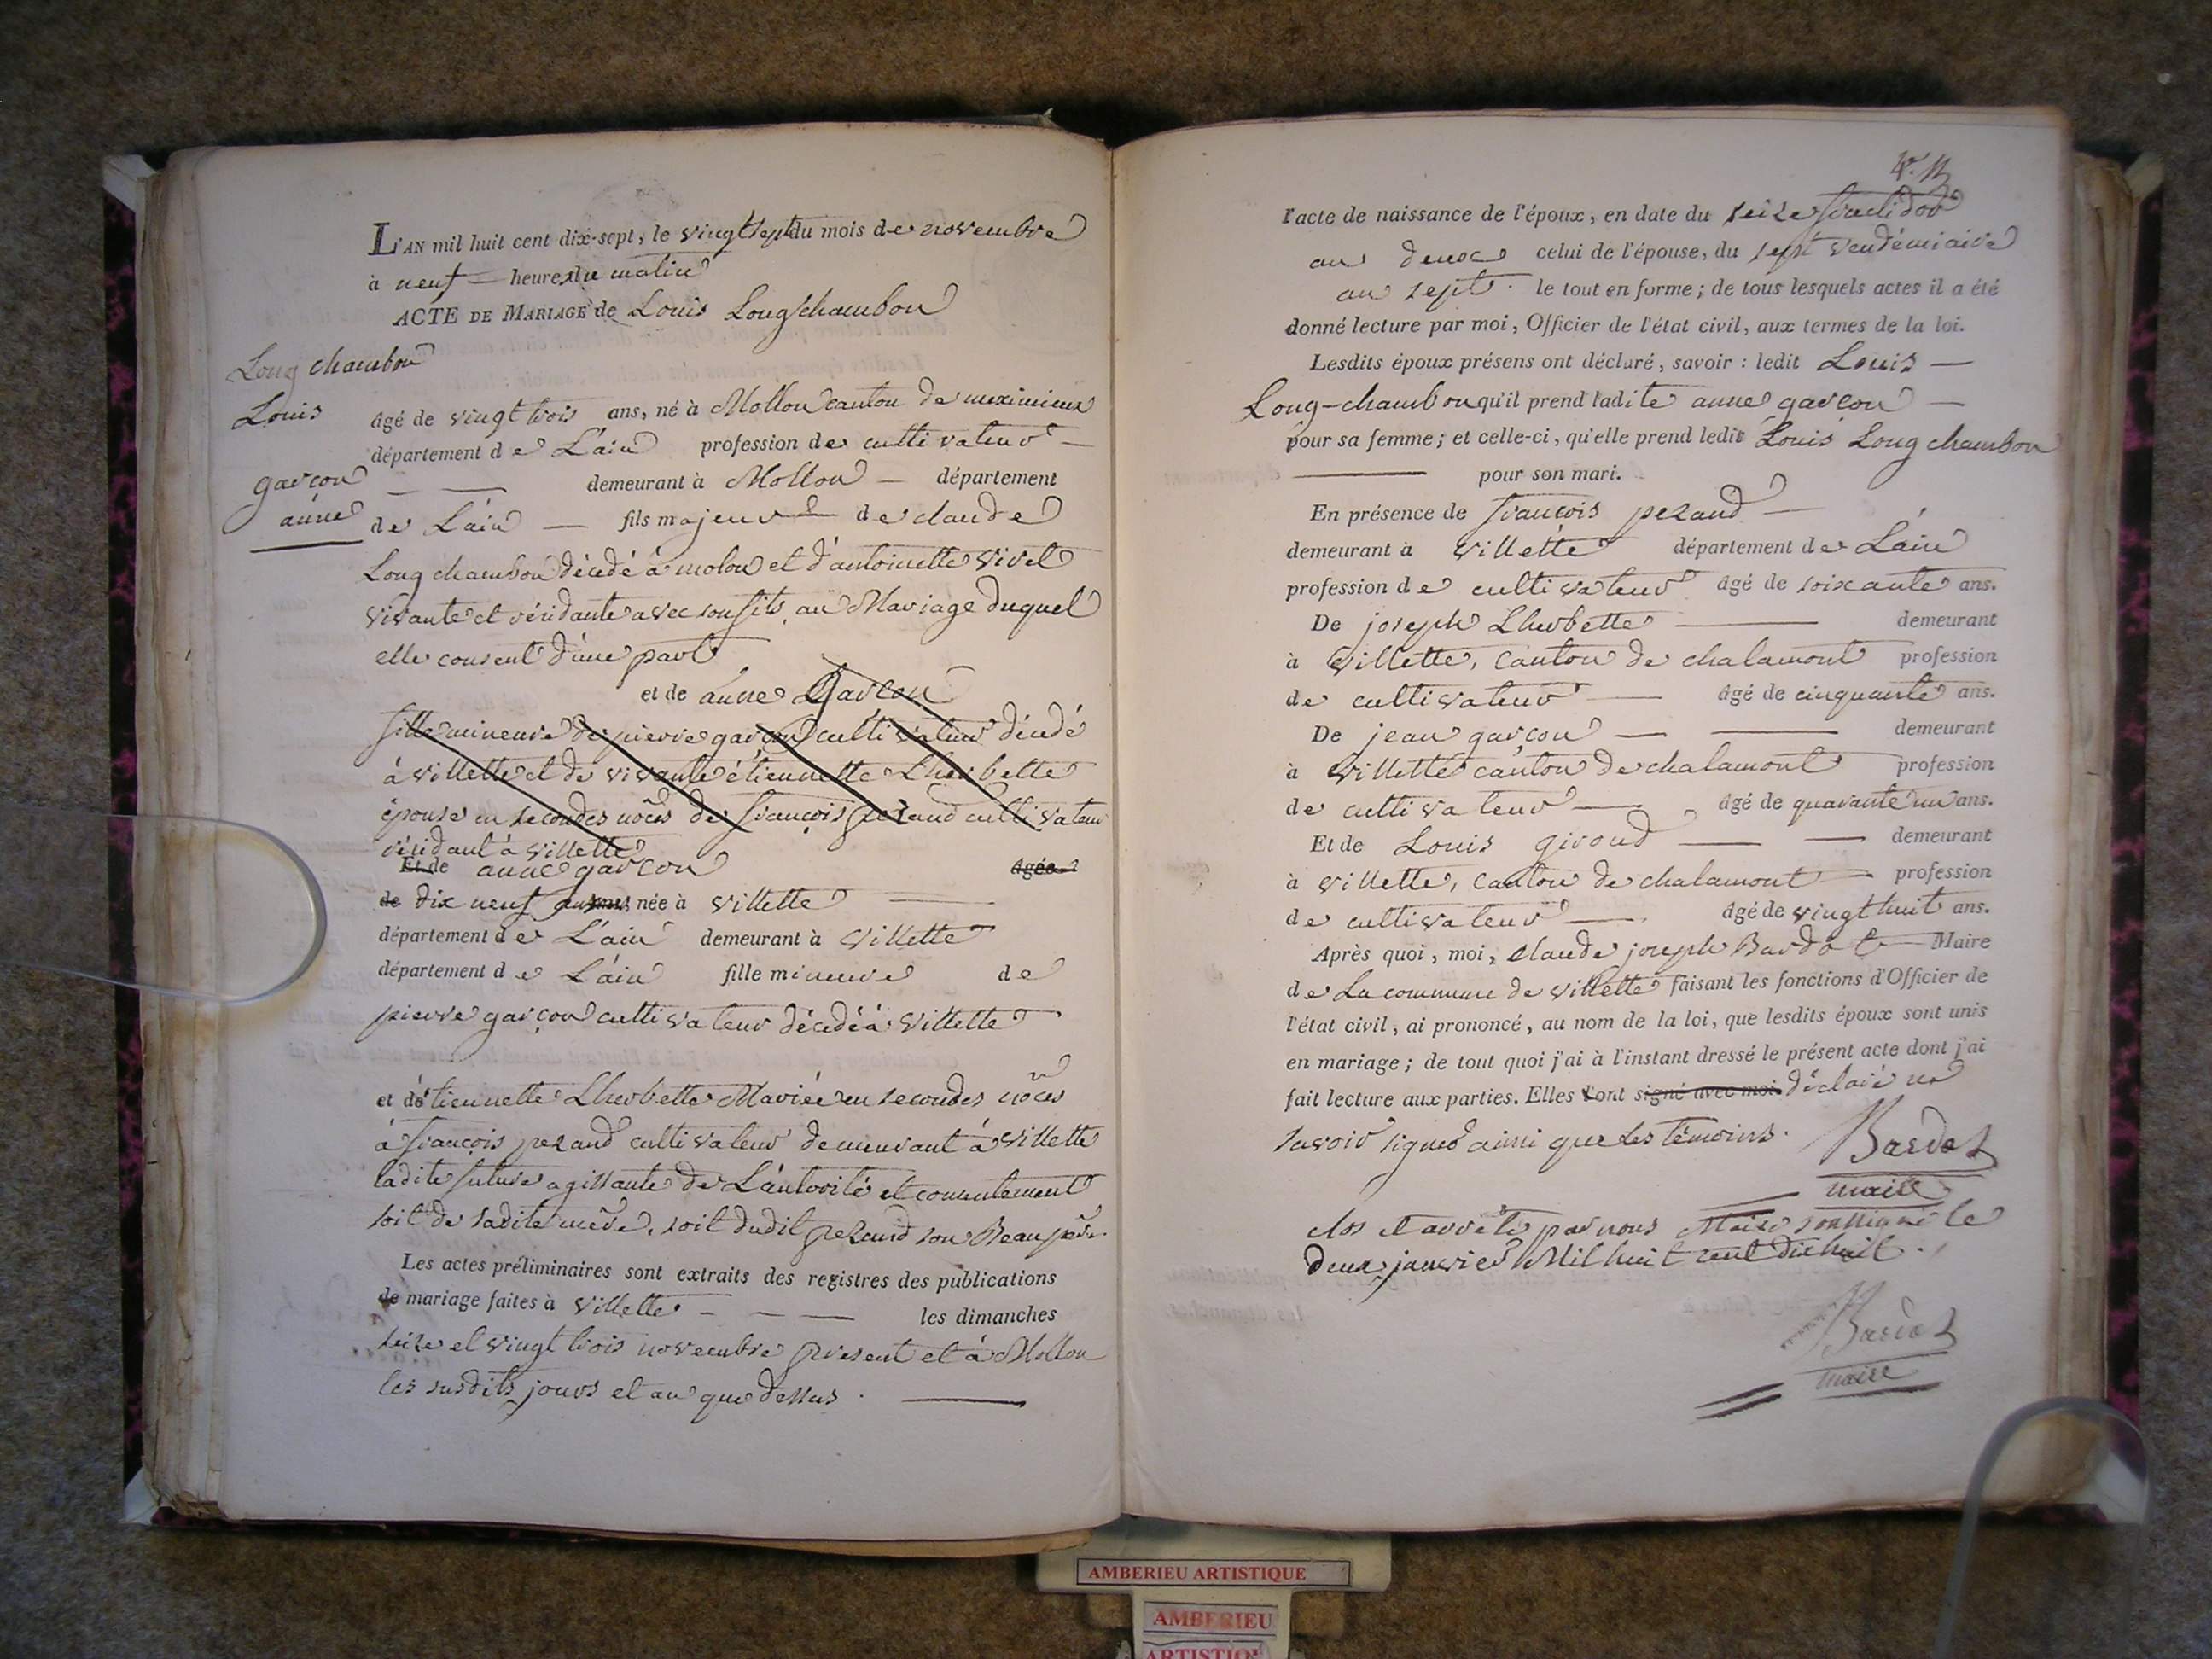 L'AN mil huit cent dix-sept, le vingt sept du mois de novembre
à neuf heures du matin
ACTE DE MARIAGE de Louis Long chambon
Long chambon
Louis
garcon
anne
âgé de vingt trois ans, né à Mollon canton de meximieux
département de L'ain profession de cultivateur
demeurant à Mollon département
de L'ain fils majeur de claude
Long chambon décédé à molon et d'antoinette vivet
vivante et résidante avec son fils, au Mariage duquel
elle consent d'une part
et de anne Garcon
fille mineure de pierre garçon cultivateur décédé
à villette et de vivante étiennette Lherbette
épouse en secondes nôces de françois perand cultivateur
résidant à villette
Et de anne garcon agée
de dix neuf ans née à villette
département de L'ain demeurant à villette
département de L'ain fille mineure de
pierre garçon cultivateur décédé à villette
et d'étiennette Lherbette Mariée en secondes nôces
à françois perand cultivateur demeurant à villette
ladite future agissante de L'autorité et consentement
soit de sadite mère, soit dudit perand son Beau père
Les actes préliminaires sont extraits des registres des publications
de mariage faites à villette les dimanches
seize et vingt trois novembre présent et à Mollon
les susdits jours et an que dessus.
l'acte de naissance de l'époux, en date du seize fructidor
an deux celui de l'épouse, du sept vendémiaire
an sept le tout en forme; de tous lesquels actes il a été
donné lecture par moi, Officier de l'état civil, aux termes de la loi.
Lesdits époux présens ont déclaré, savoir : ledit Louis
Long-chambon qu'il prend ladite anne garcon
pour sa femme; et celle-ci, qu'elle prend ledit Louis Long chambon
pour son mari.
En présence de françois perand
demeurant à villette département de L'ain
profession de cultivateur âgé de soixante ans.
De joseph Lherbette demeurant
à villette, canton de chalamont profession
de cultivateur âgé de cinquante ans.
De jean garcon demeurant
à villette canton de chalamont profession
de cultivateur âgé de quarante un ans.
Et de Louis giroud demeurant
à villette, canton de chalamont profession
de cultivateur âgé de vingt huit ans.
Après quoi, moi, claude joseph Bardot Maire
de La commune de villette faisant les fonctions d'Officier de
l'état civil, ai prononcé, au nom de la loi, que lesdits époux sont unis
en mariage; de tout quoi j'ai à l'instant dressé le présent acte dont j'ai
fait lecture aux parties. Elles l'ont signé avec moi déclaré ne
savoir signer ainsi que les témoins.
Bardot
maire
clos et arrêté par nous Maire soussigné le
deux janvier Mil huit cent dix huit.
Bardot
maire
AMBERIEU ARTISTIQUE
AMBERIEU
ARTISTIQUE